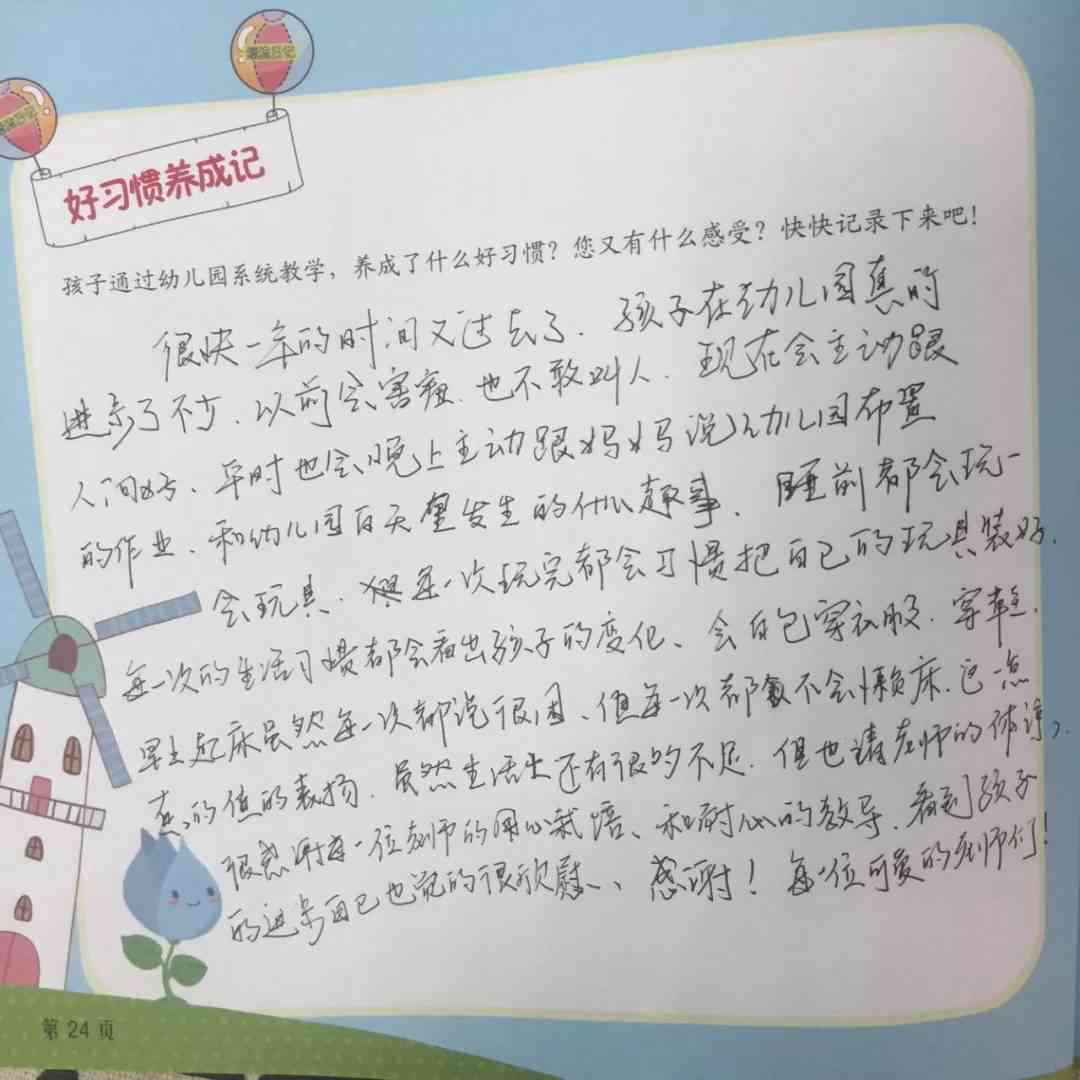 好习惯养成记
孩子通过幼儿园系统教学，养成了什么好习惯？您又有什么感受？快快记录下来吧！
很快一年的时间又过去了．孩子在幼儿园真的
进步了不少．以前会害羞．也不敢叫人．现在会主动跟
人问好、平时也会晚上主动跟妈妈说幼儿园布置
的作业、和幼儿园白天里发生的什么趣事．睡前都会玩一
会玩具．每一次玩完都会习惯把自己的玩具装好．
每一次的生活习惯都会看出孩子的变化、会自己穿衣服．穿鞋．
早上起床虽然每一次都说很困、但每一次都不会懒床．这一点
真的值的表扬．虽然生活上还有很多不足．但也请老师的体谅、
很感谢每一位老师的用心栽培、和耐心的教导．看到孩子
的进步自己也觉的很欣慰、感谢！每一位可爱的老师们！
第 24 页